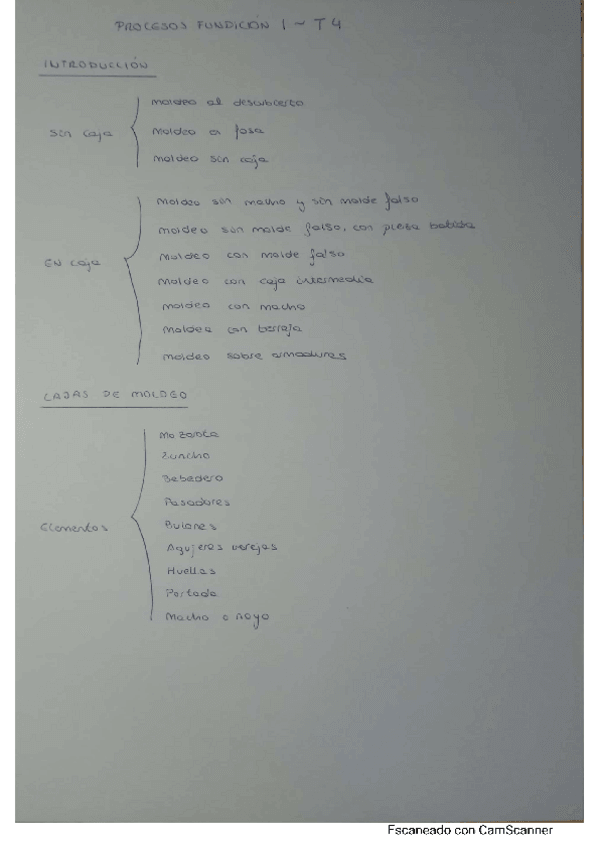 PROCESOS FUNDICIÓN 1 ~ T4
INTRODUCCIÓN
Sin caja
moldeo al descubierto
Moldeo a fosa
Moldeo sin caja
EN caja
Moldeo sin macho y sin molde falso
moldeo sin molde falso, con pieza batida
Moldeo con molde falso
Moldeo con caja intermedia
moldeo con macho
Moldeo con terraja
moldeo sobre armadures
CAJAS DE MOLDEO
Elementos
Mazarota
Zuncho
Bebedero
Pasadores
Bulones
Agujeros orejas
Huellas
Portada
Macho o noyo
Escaneado con CamScanner